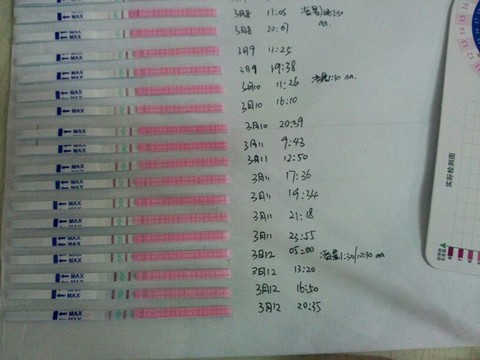 MAX 3月8 11:05
MAX 3月8
MAX 3月9 11:25
MAX 3月9 19:38
MAX 3月10 11:26
MAX 3月10 16:10
MAX 3月10 20:39
MAX 3月11 9:43
MAX 3月11 12:50
MAX 3月11 17:36
MAX 3月11 19:34
MAX 3月11 21:18
MAX 3月11 23:55
MAX 3月12 05:00
MAX 3月12 13:20
MAX 3月12 16:50
MAX 3月12 20:35
实际检测图